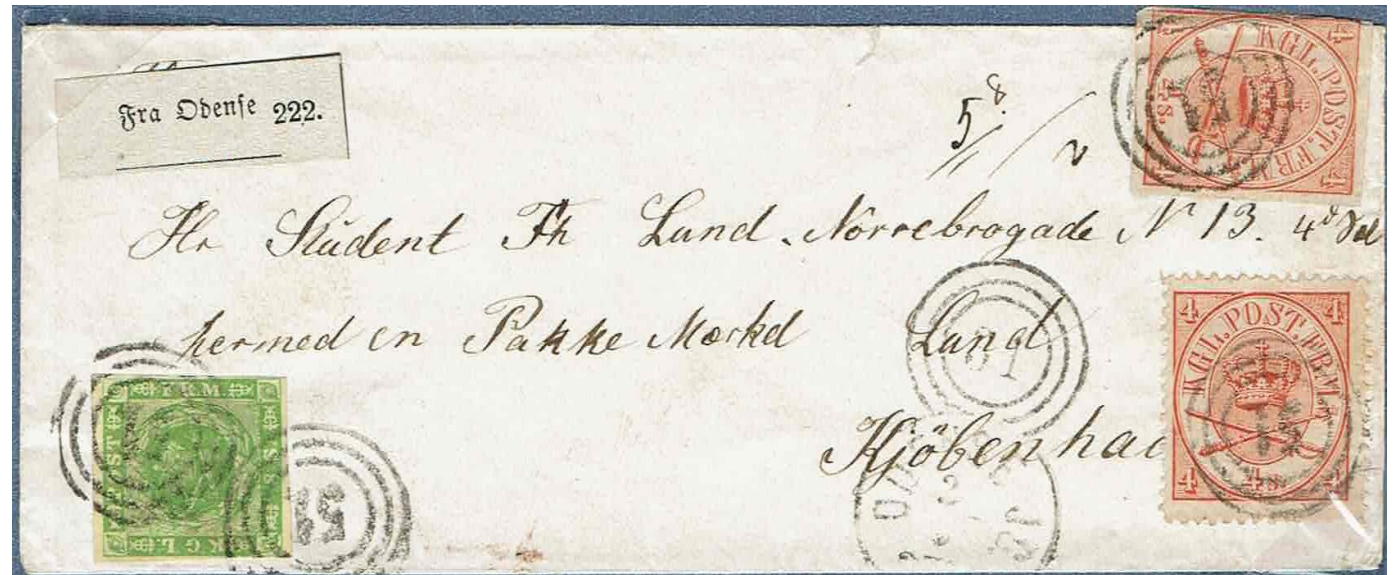 Fra Odense 222.
5 8
Hr Student Th Lund. Norrebrogade N 13. 4d
hermed en Pakke Mærkd Lund
Kjöbenhav
KGL. POST. FRM.
4 4
KGL. POST. FRM.
4 4 4
F.R.M.
KGL
POST
51
51